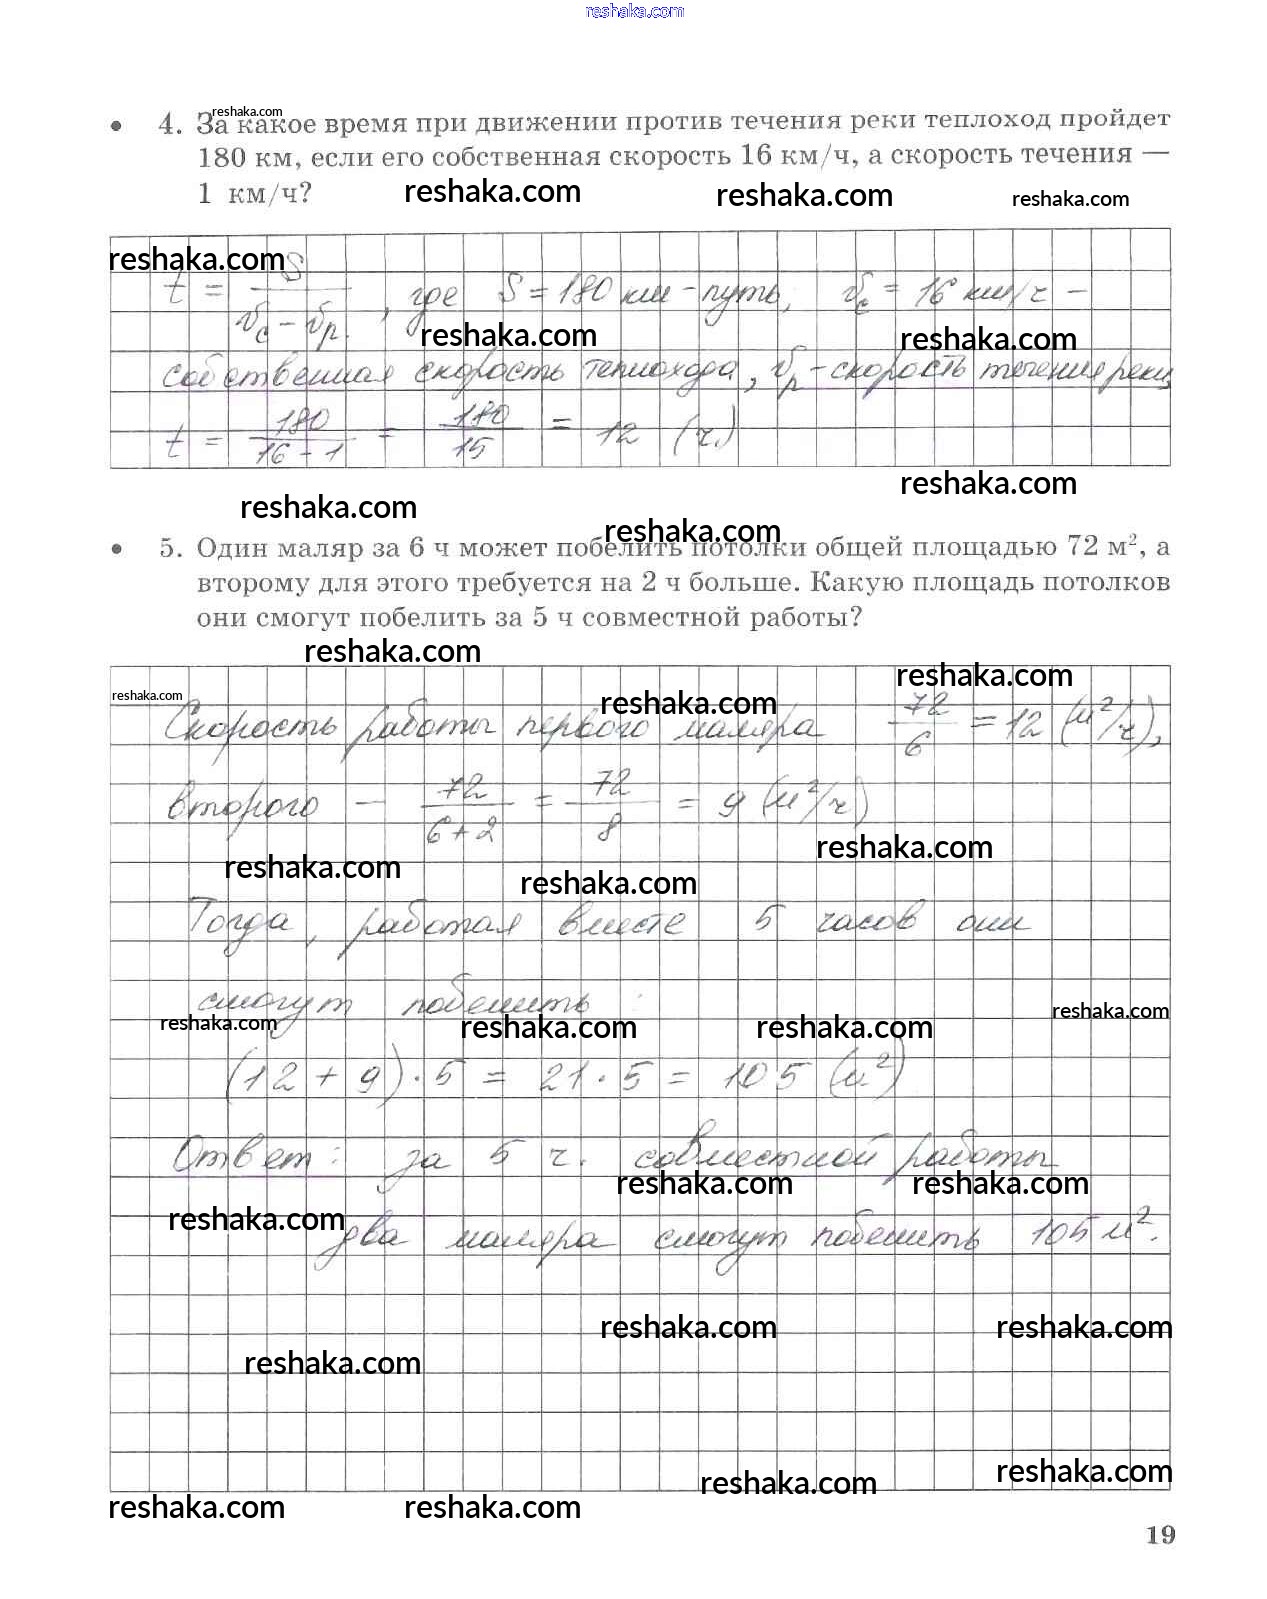 reshaka.com
reshaka.com
• 4. За какое время при движении против течения реки теплоход пройдет
180 км, если его собственная скорость 16 км/ч, а скорость течения —
1 км/ч?
reshaka.com reshaka.com reshaka.com
reshaka.com
t = S / (v_c - v_р.), где S = 180 км - путь, v_c = 16 км/ч -
reshaka.com reshaka.com
собственная скорость теплохода, v_р - скорость течения реки,
t = 180 / (16 - 1) = 180 / 15 = 12 (ч.)
reshaka.com
reshaka.com
reshaka.com
• 5. Один маляр за 6 ч может побелить потолки общей площадью 72 м², а
второму для этого требуется на 2 ч больше. Какую площадь потолков
они смогут побелить за 5 ч совместной работы?
reshaka.com
reshaka.com
reshaka.com
reshaka.com
Скорость работы первого маляра 72 / 6 = 12 (м²/ч),
второго - 72 / (6+2) = 72 / 8 = 9 (м²/ч)
reshaka.com
reshaka.com
reshaka.com
Тогда, работая вместе 5 часов они
смогут побелить:
reshaka.com
reshaka.com reshaka.com reshaka.com
(12 + 9) · 5 = 21 · 5 = 105 (м²)
Ответ: за 5 ч. совместной работы
reshaka.com reshaka.com
reshaka.com
два маляра смогут побелить 105 м².
reshaka.com reshaka.com
reshaka.com
reshaka.com
reshaka.com
reshaka.com reshaka.com
19